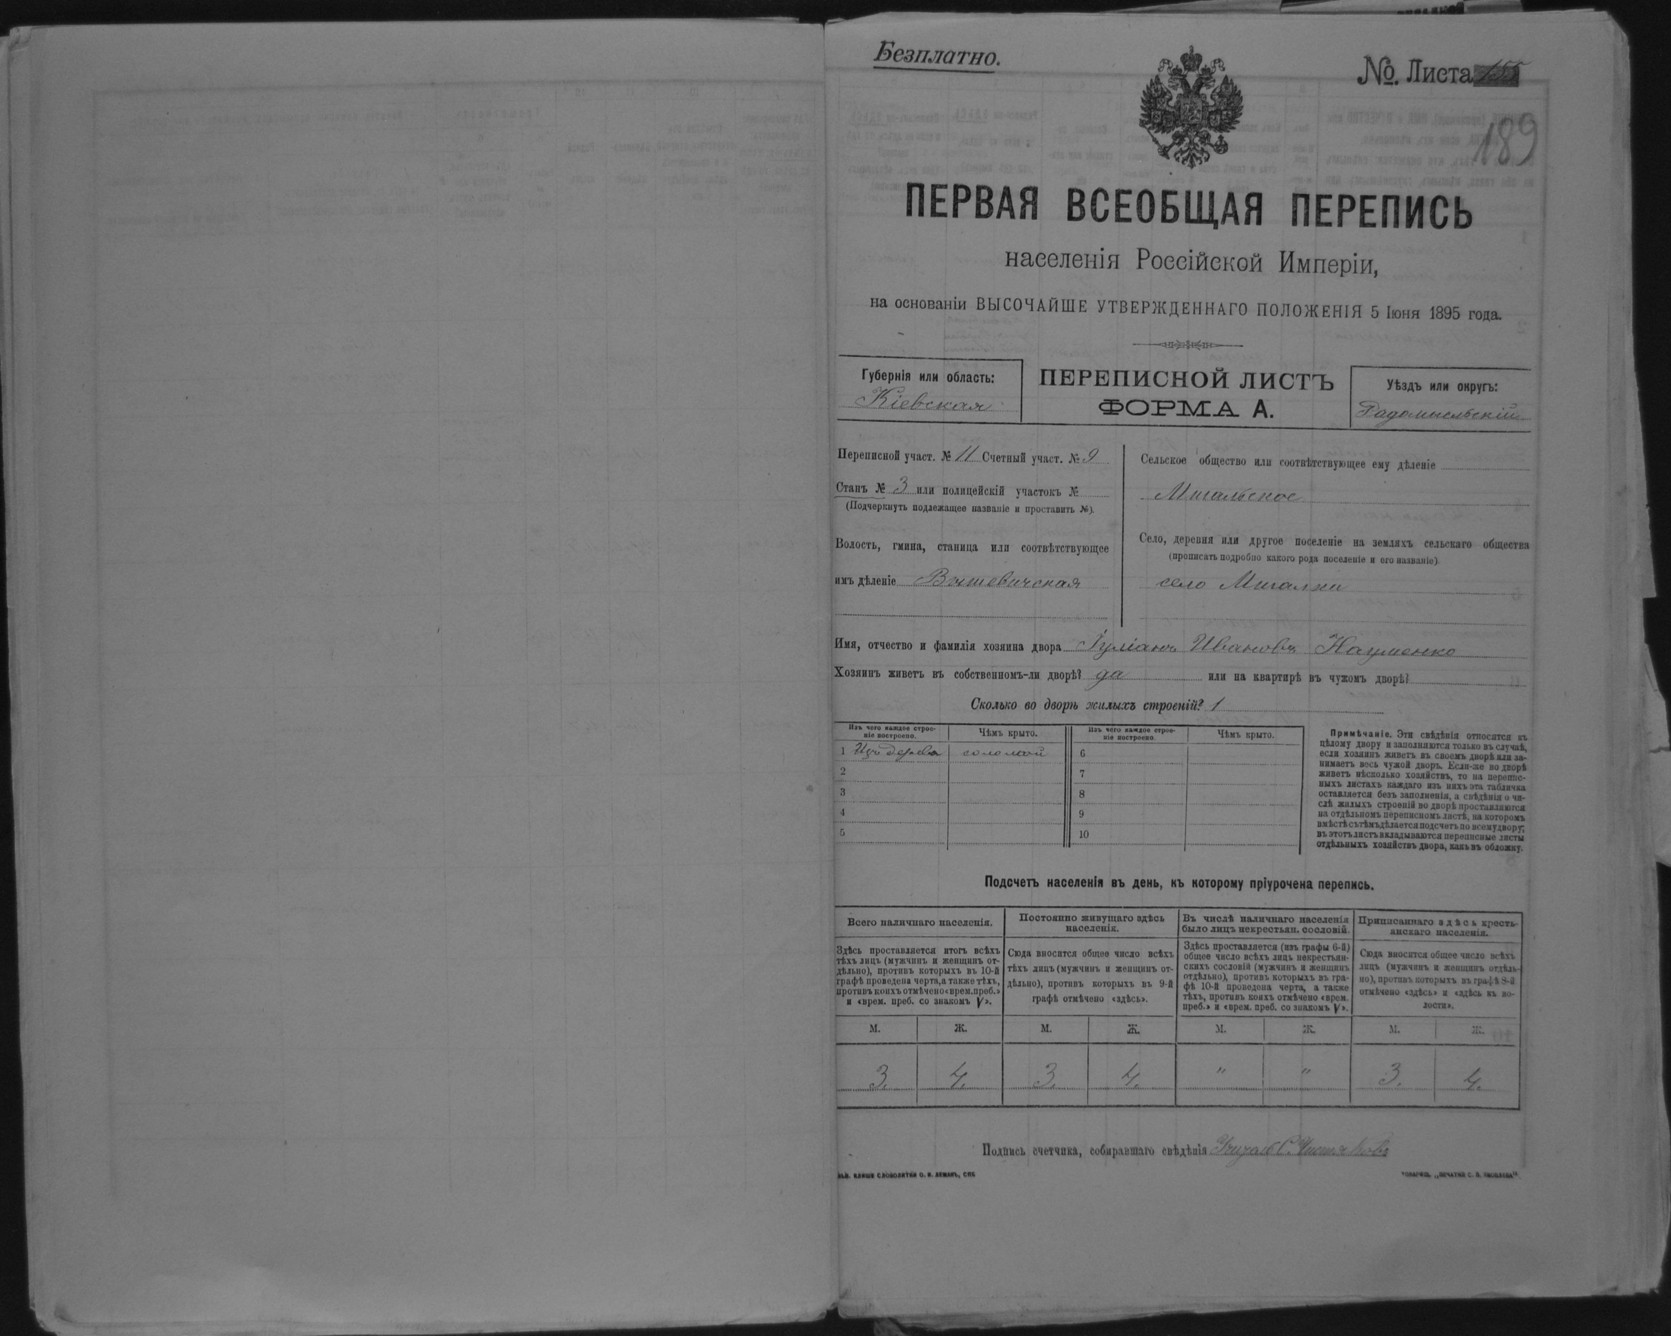 Безплатно.
№ Листа 155
189
ПЕРВАЯ ВСЕОБЩАЯ ПЕРЕПИСЬ
населенія Россійской Имперіи,
на основаніи ВЫСОЧАЙШЕ УТВЕРЖДЕННАГО ПОЛОЖЕНІЯ 5 Іюня 1895 года.
Губернія или область:
Кіевская
ПЕРЕПИСНОЙ ЛИСТЪ
ФОРМА А.
Уѣздъ или округъ:
Радомысльскій
Переписной участ. № 11 Счетный участ. № 9
Станъ № 3 или полицейскій участокъ №
(Подчеркнуть подлежащее названіе и проставить №).
Волость, гмина, станица или соотвѣтствующее
имъ дѣленіе Вышевичская
Сельское общество или соотвѣтствующее ему дѣленіе
Мигальское
Село, деревня или другое поселеніе на земляхъ сельскаго общества
(прописать подробно какого рода поселеніе и его названіе)
село Мигалки
Имя, отчество и фамилія хозяина двора Іуліанъ Ивановъ Науменко
Хозяинъ живетъ въ собственномъ-ли дворѣ? да или на квартирѣ въ чужомъ дворѣ?
Сколько во дворѣ жилыхъ строеній? 1
Изъ чего каждое строе-
ніе построено.
Чѣмъ крыто.
Изъ чего каждое строе-
ніе построено.
Чѣмъ крыто.
1 Изъ дерева соломой 6
2 7
3 8
4 9
5 10
Примѣчаніе. Эти свѣдѣнія относятся къ
цѣлому двору и заполняются только въ случаѣ,
если хозяинъ живетъ въ своемъ дворѣ или за-
нимаетъ весь чужой дворъ. Если-же во дворѣ
живетъ нѣсколько хозяйствъ, то на перепис-
ныхъ листахъ каждаго изъ нихъ эта табличка
оставляется безъ заполненія, а свѣдѣнія о чи-
слѣ жилыхъ строеній во дворѣ проставляются
на отдѣльномъ переписномъ листѣ, на которомъ
вмѣстѣ съ тѣмъ дѣлается подсчетъ по всему двору;
въ этотъ листъ вкладываются переписные листы
отдѣльныхъ хозяйствъ двора, какъ въ обложку.
Подсчетъ населенія въ день, къ которому пріурочена перепись.
Всего наличнаго населенія.
Постоянно живущаго здѣсь
населенія.
Въ числѣ наличнаго населенія
было лицъ некрестьян. сословій.
Приписаннаго здѣсь кресть-
янскаго населенія.
Здѣсь проставляется итогъ всѣхъ
тѣхъ лицъ (мужчинъ и женщинъ от-
дѣльно), противъ которыхъ въ 10-й
графѣ проведена черта, а также тѣхъ,
противъ коихъ отмѣчено «врем. преб.»
и «врем. преб. со знакомъ V».
Сюда вносится общее число всѣхъ
тѣхъ лицъ (мужчинъ и женщинъ от-
дѣльно), противъ которыхъ въ 9-й
графѣ отмѣчено «здѣсь».
Здѣсь проставляется (изъ графы 6-й)
общее число всѣхъ лицъ некрестьян-
скихъ сословій (мужчинъ и женщинъ
отдѣльно), противъ которыхъ въ гра-
фѣ 10-й проведена черта, а также
тѣхъ, противъ коихъ отмѣчено «врем.
преб.» и «врем. преб. со знакомъ V».
Сюда вносится общее число всѣхъ
лицъ (мужчинъ и женщинъ отдѣль-
но), противъ которыхъ въ графѣ 8-й
отмѣчено «здѣсь» и «здѣсь въ во-
лости».
М. Ж. М. Ж. М. Ж. М. Ж.
3. 4. 3. 4. " " 3. 4.
Подпись счетчика, собиравшаго свѣдѣнія С. Чистяковъ
КЛИШЕ СЛОВОЛИТНИ О. И. ЛЕМАНЪ, СПБ.